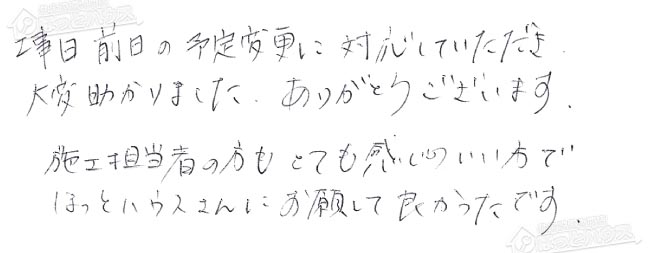 工事日前日の予定変更に対応していただき、
大変助かりました。ありがとうございます。
施工担当者の方も とても感じのいい方で
ほっとハウスさんにお願して良かったです。